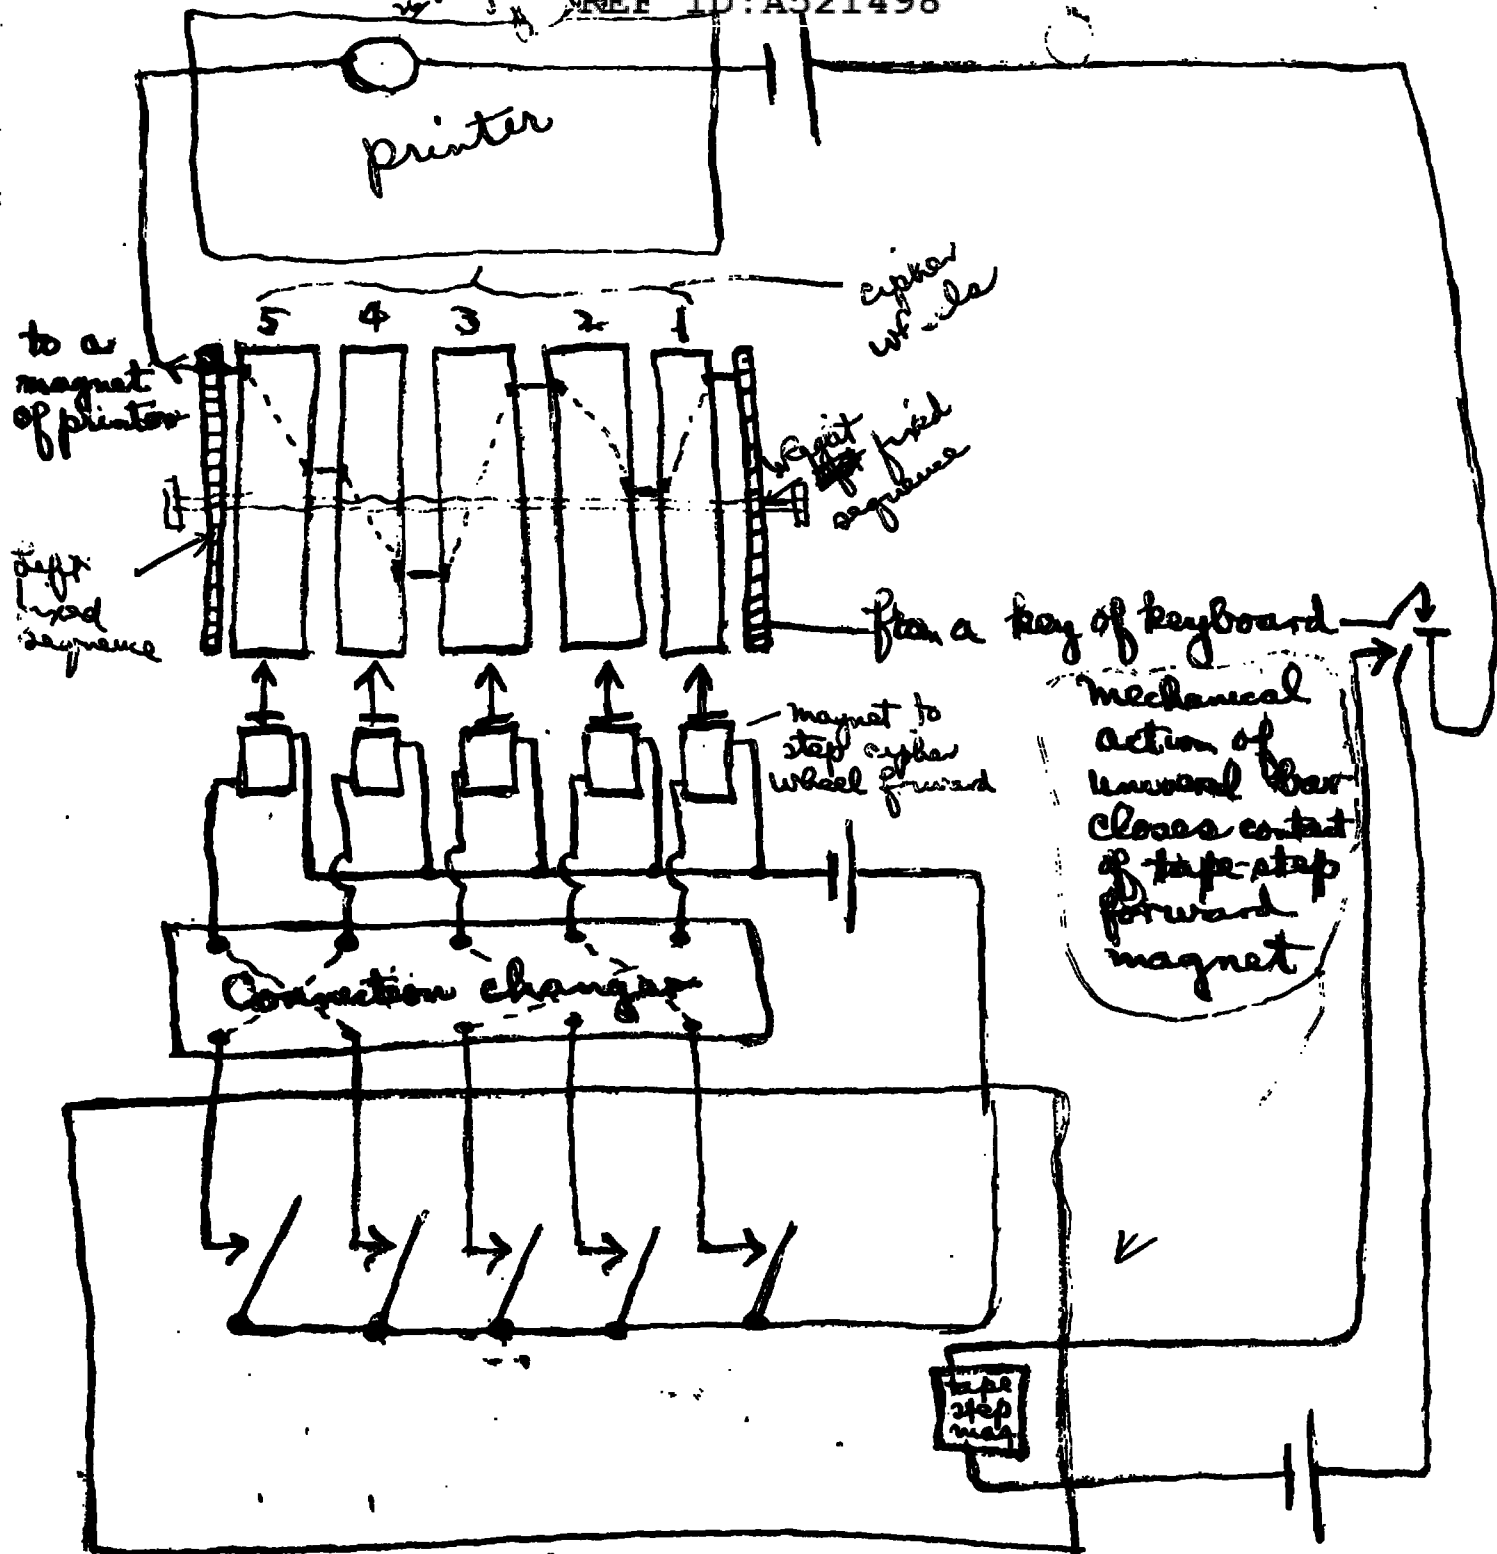 REF ID:A521498
printer
cipher
5 4 3 2 1
to a
magnet
of printer
Right
fixed
sequence
Left
fixed
sequence
from a key of keyboard
magnet to
step cypher
wheel forward
mechanical
action of
universal bar
closes contact
of tape-step
forward
magnet
Connection changer
tape
step
mag.